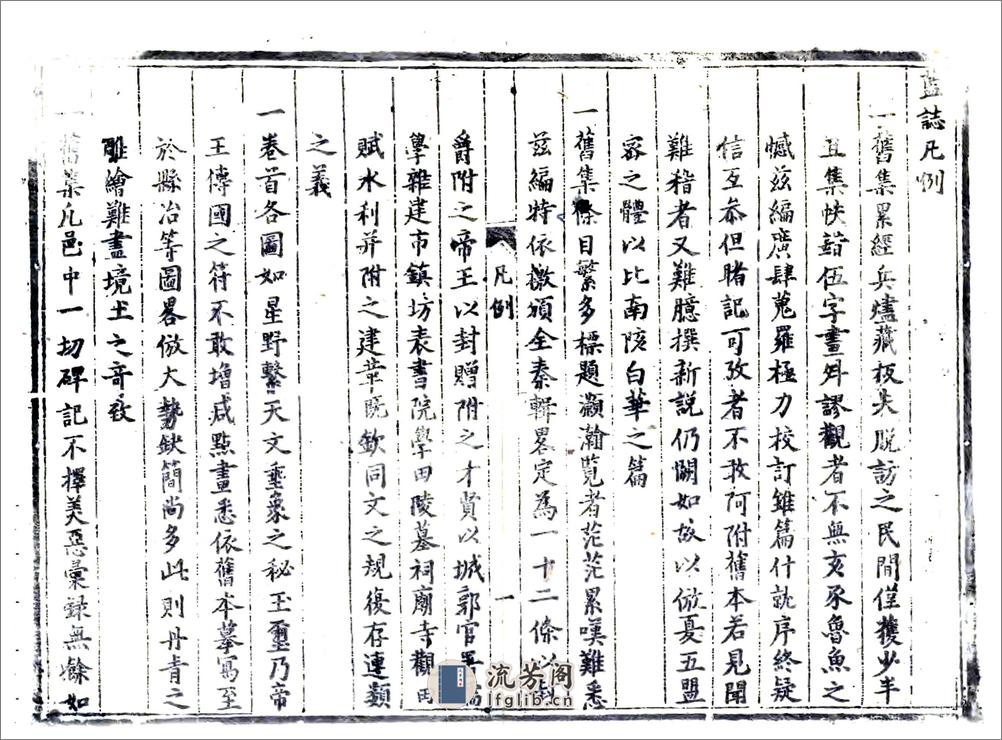 藍誌凡例
一舊集累經兵燼藏板失脫訪之民間僅獲少半
且集帙錯伍字畫舛謬觀者不無亥豕魯魚之
憾茲編廣肆蒐羅極力校訂雖篇什就序終疑
信互叅但睹記可攷者不敢阿附舊本若見聞
難稽者又難臆撰新說仍闕如故以倣憂五盟
宻之體以比南陔白華之篇
一舊集條目繁多標題灝瀚覽者茫茫累嘆難悉
茲編特依檄頒全秦輯畧定為一十二條以
爵附之帝王以封贈附之才賢以城郭官署
學雜建市鎮坊表書院學田陵墓祠廟寺觀
賦水利并附之建革旣欽同文之規復存連類
之義
一卷首各圖如星野繫天文埀象之秘玉璽乃帝
王傳國之符不敢增减㸃畫悉依舊本摹寫至
於縣治等圖畧倣大勢缺簡尚多此則丹青之
雕繪難盡境土之竒致
一舊集凡邑中一切碑記不擇美惡彚録無餘如
凡例
一
流芳阁
jfglib.cn